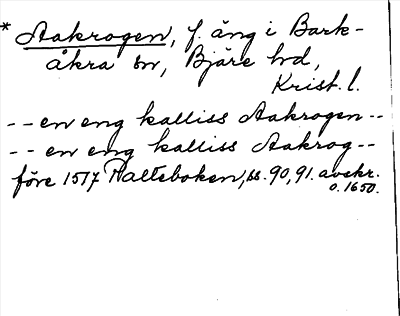 * Aakrogen, f. äng i Bark-
åkra sn, Bjäre hd,
Krist. l.
-- en eng kalliss Aakrogen --
-- en eng kalliss Aakrog --
före 1517 Palteboken, ss. 90, 91. avskr.
o. 1650.